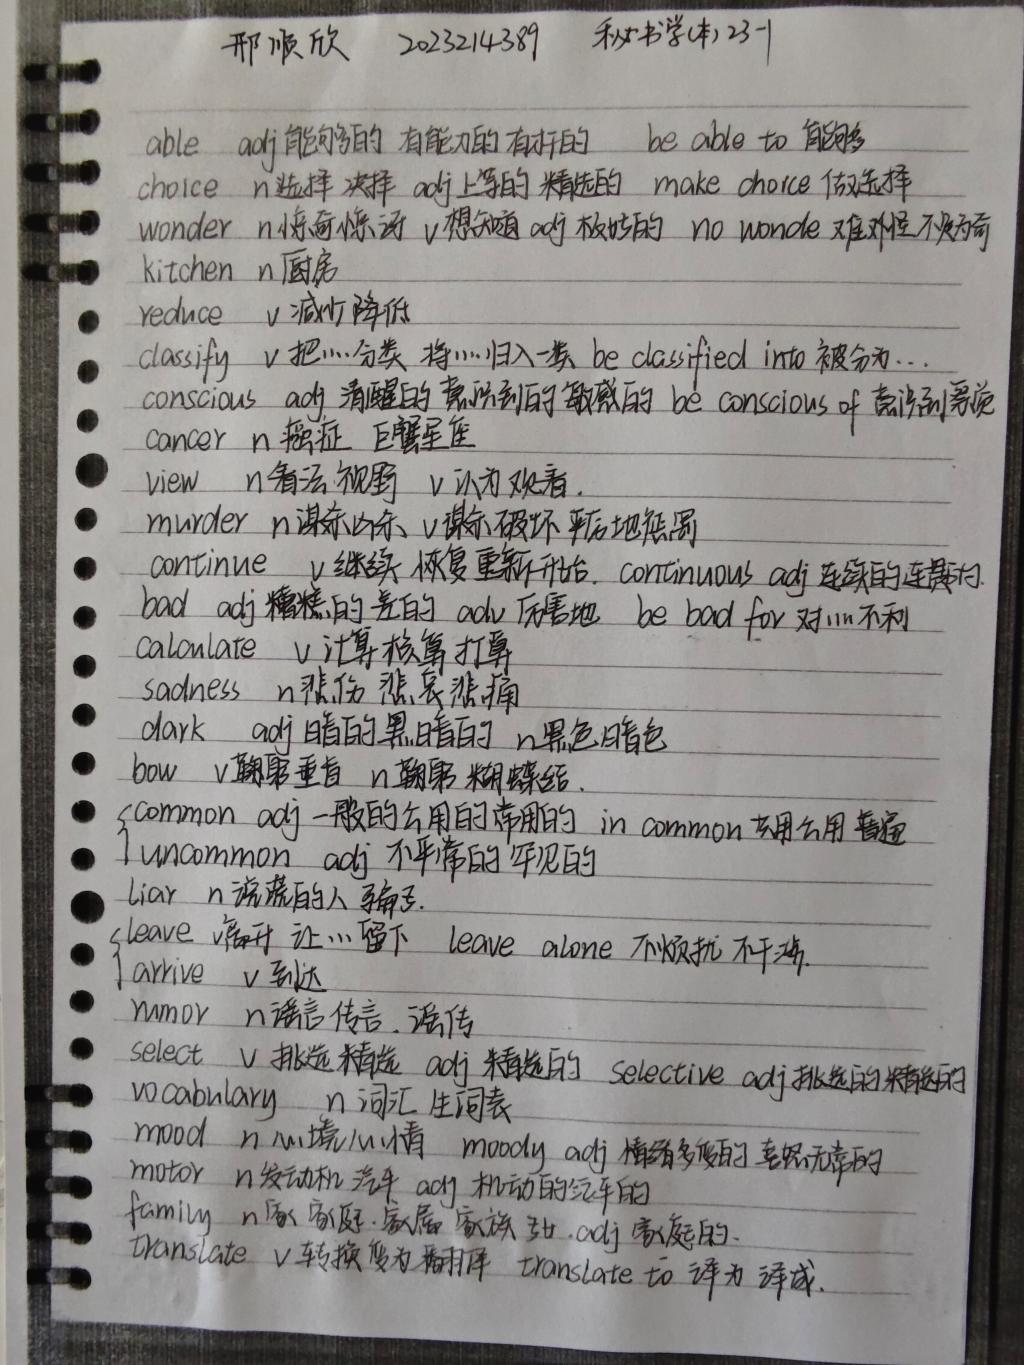 邢顺欣 2023214389 秘书学(本)23-1
able adj能够的 有能力的有才的 be able to 能够
choice n选择 决择 adj上等的 精选的 make choice 做选择
wonder n惊奇惊讶 v想知道 adj极妙的 no wonde 难怪不足为奇
kitchen n厨房
reduce v减少降低
classify v把……分类 将……归入一类 be classified into 被分为…
conscious adj 清醒的 意识到的 敏感的 be conscious of 意识到 察觉
cancer n 癌症 巨蟹星座
view n看法 视野 v认为 观看.
murder n谋杀凶杀 v谋杀破坏 严厉地惩罚
continue v继续 恢复 重新开始. continuous adj 连续的连贯的.
bad adj 糟糕的 差的 adv 厉害地 be bad for 对……不利
calculate v计算 核算 打算
sadness n悲伤 悲哀 悲痛
dark adj 暗的 黑暗的 n黑色暗色
bow v鞠躬垂首 n鞠躬 蝴蝶结.
common adj 一般的公用的常用的 in common 共用 公用 普遍
uncommon adj 不平常的 罕见的
liar n说谎的人 骗子.
leave v离开 让…留下 leave alone 不烦扰 不干涉.
arrive v 到达
rumor n谣言 传言. 谣传
select v 挑选 精选 adj 精选的 selective adj挑选的精选的
vocabulary n 词汇 生词表
mood n 心境心情 moody adj 情绪多变的 喜怒无常的
motor n发动机 汽车 adj 机动的汽车的
family n家 家庭. 家属 家族 adj 家庭的.
translate v 转换 变为 翻译 translate to 译为 译成.